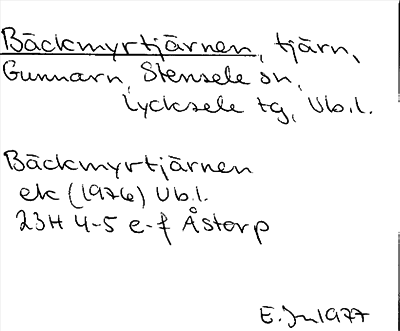 Bäckmyrtjärnen, tjärn,
Gunnarn, Stensele sn,
Lycksele tg, Vb.l.
Bäckmyrtjärnen
ek (1976) Vb.l.
23H 4-5 e-f Åstorp
E. Jn 1977